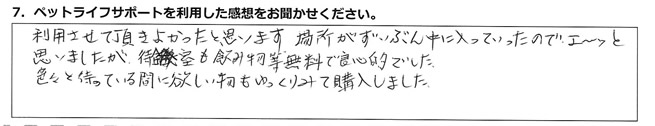 7. ペットライフサポートを利用した感想をお聞かせください。
利用させて頂きよかったと思います 場所がずいぶん中に入っていったのでエ〜ッと
思いましたが、待機室も飲み物等無料で良心的でした。
色々と待っている間に欲しい物もゆっくりみて購入しました。